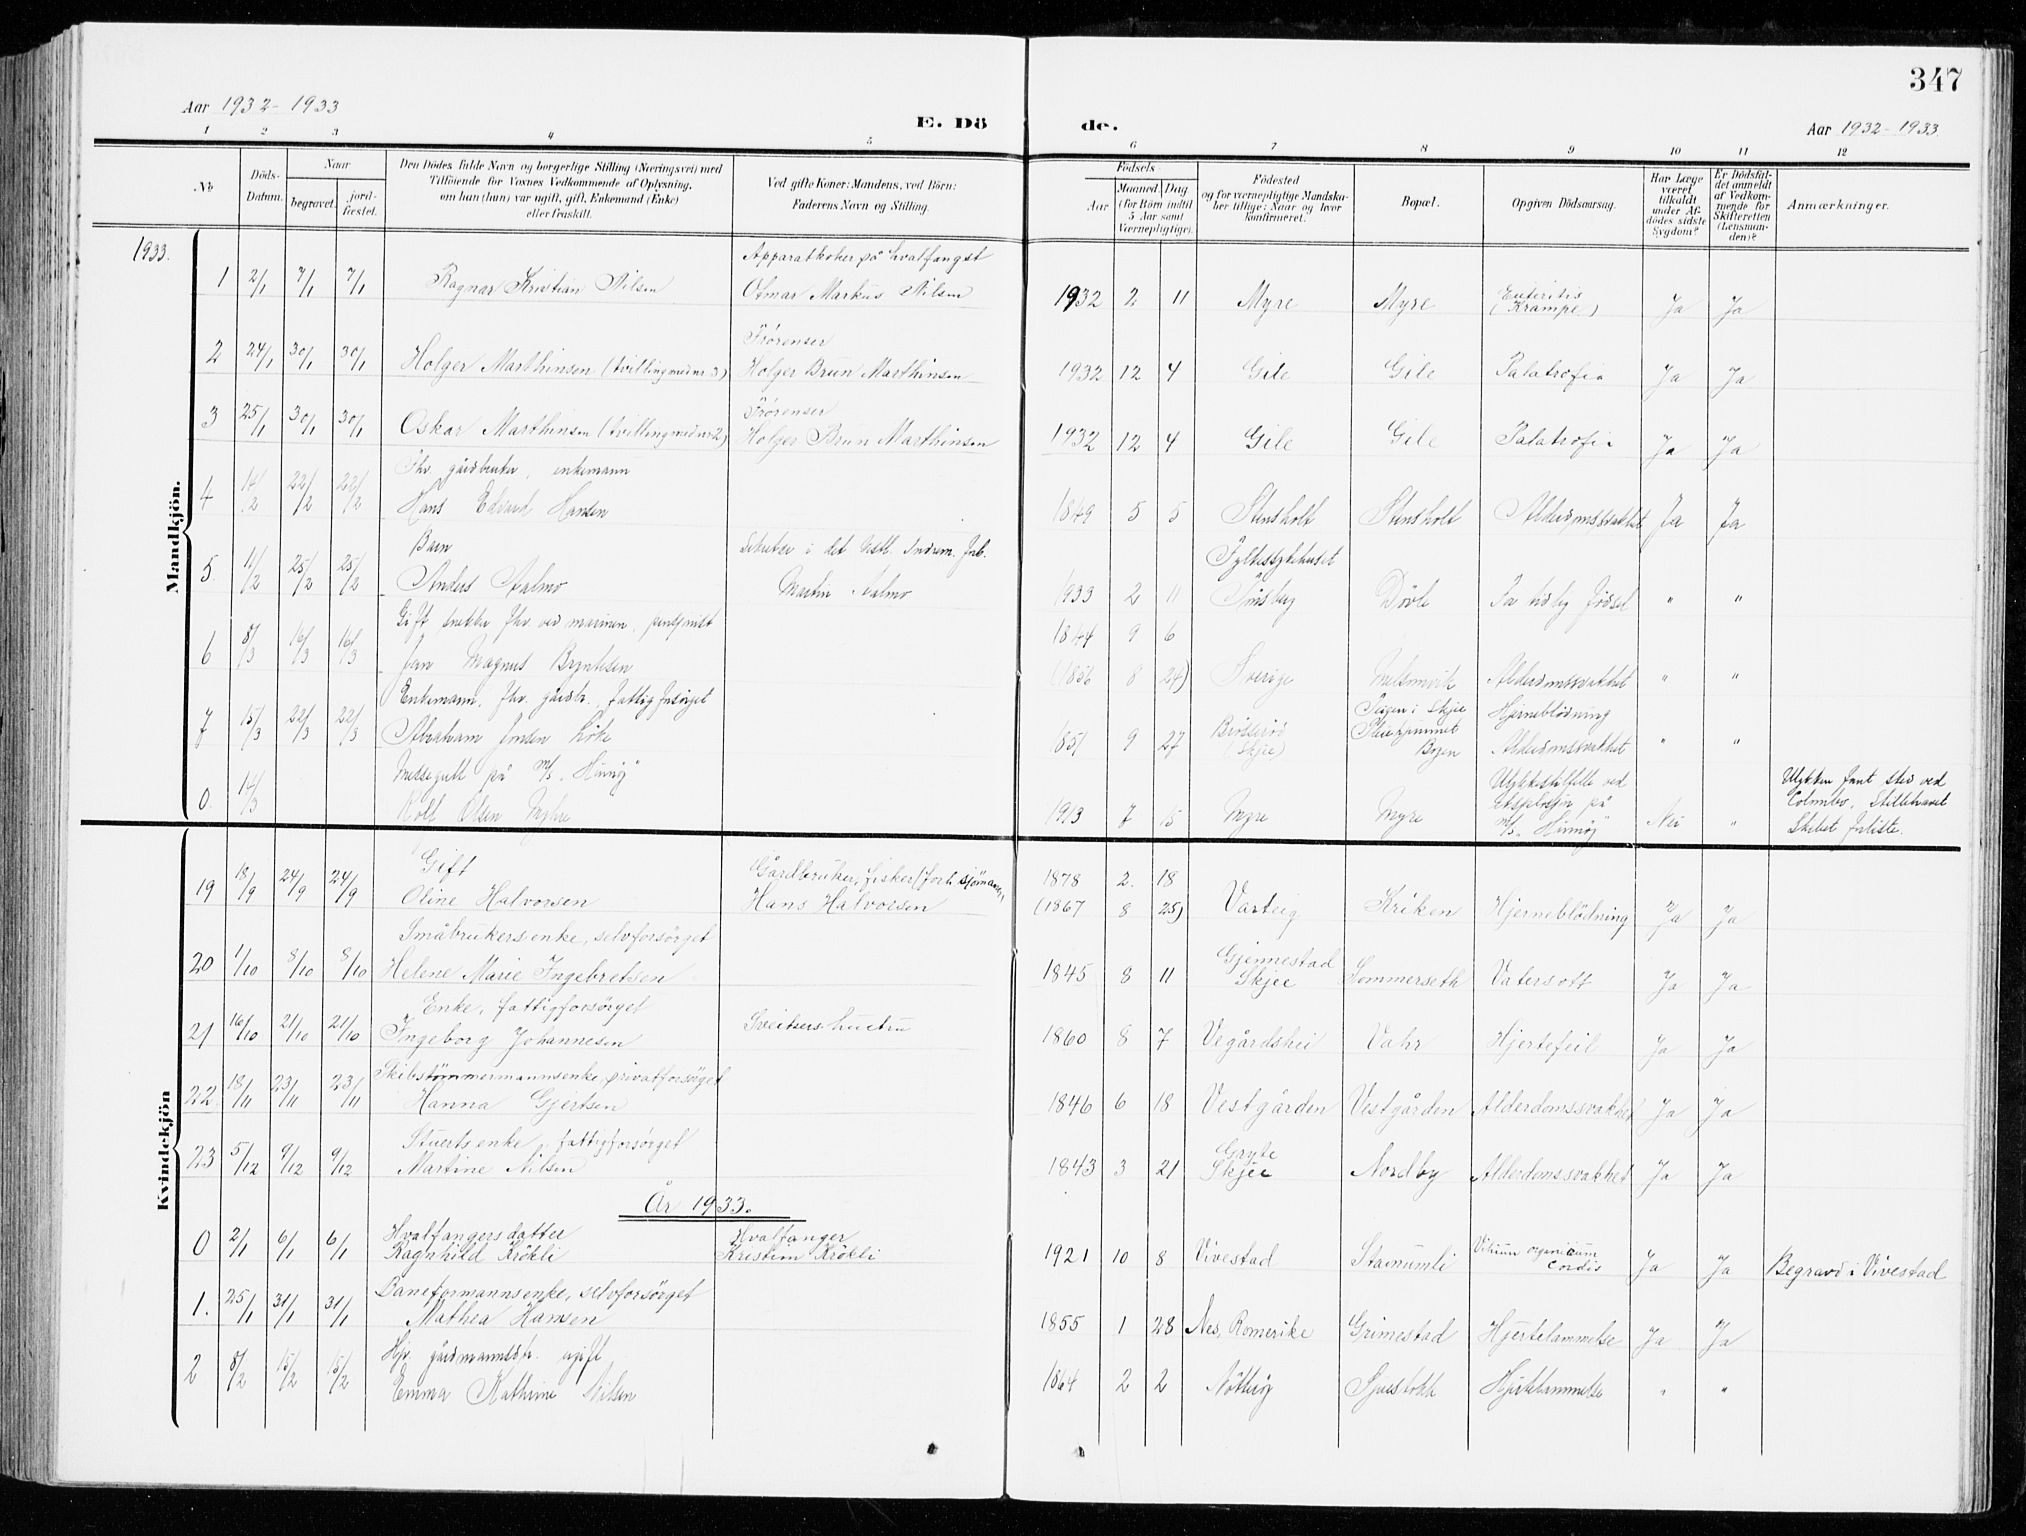 347
Aar 1932-1933
E. Dö
de.
Aar 1932-1933
1 2 3 4 5 6 7 8 9 10 11 12
No
Döds-
Datum.
Naar
begravet.
jord-
fæstet.
Den Dödes fulde Navn og borgerlige Stilling (Næringsvei) med
Tilföiende for Voxnes Vedkommende af Oplysning,
om han (hun) var ugift, gift, Enkemand (Enke)
eller fraskilt.
Ved gifte Koner: Mandens, ved Börn:
Faderens Navn og Stilling.
Födsels
Aar
Maaned. Dag.
(for Börn indtil
5 Aar samt
Værnepligtige).
Födested
og for værnepligtige Mandska-
ber tillige: Naar og hvor
konfirmeret.
Bopæl.
Opgiven Dödsaarsag.
Har Læge
været
tilkaldt
under Af-
dödes sidste
Sygdom?
Er Dödsfal-
det anmeldt
af Vedkom-
mende for
Skifteretten
(Lensman-
den)?
Anmærkninger.
Mandkjön.
1933.
Apparatkoker på hvalfangst
1 2/1 7/1 7/1 Ragnar Kristian Nilsen Otmar Markus Nilsen 1932 2 11 Myre Myre Enteritis (Krampe) Ja Ja
Frørenser
2 24/1 30/1 30/1 Holger Marthinsen (tvilling med nr 3) Holger Brun Marthinsen 1932 12 4 Gile Gile Palatrofia Ja Ja
Frørenser
3 25/1 30/1 30/1 Oskar Marthinsen (tvilling med nr 2) Holger Brun Marthinsen 1932 12 4 Gile Gile Palatrofi Ja Ja
Fhv. gårdbruker, enkemann
4 14/2 22/2 22/2 Hans Edvard Hansen 1849 5 5 Stensholt Stensholt Alderdomssvakhet Ja Ja
Barn Sekretær i det Vestl. Indrem. Forb. Fylkessykehuset
5. 11/2 25/2 25/2 Anders Aalmo Martin Aalmo 1933 2 11 Tönsberg Dövle For tidlig födsel " "
Gift snekker fhv. ved marinen, pensjonist 1844 9 6
6 8/3 16/3 16/3 Jan Magnus Byntesen (1856 8 24) Sverige Melsomvik Alderdomssvakhet " "
Enkemann, fhv. gårdbr., fattigforsörget i Skjee Hjerneblödning
7 15/3 22/3 22/3 Abraham Jonsen Löke 1851 9 27 (Skjee) Alderdomssvakhet " "
Messegutt på m/s "Himöy" Ulykkestilfelle ved Ulykken fant sted ved
0. 14/3 Rolf Olsen Myhre 1913 7 15 Myre Myre Eksplosjon på m/s "Himöy" Nei " Colombo, Stillehavet
Skibet forliste.
Kvindekjön
Gift Gårdbruker, fisker (forh. sjömann) 1878 2. 18
19 18/9 24/9 24/9 Oline Halvorsen Hans Halvorsen (1867 8 25) Varteig Kröken Hjerneblödning Ja Ja
Småbrukers enke, selvforsörget Gjennestad
20 1/10 8/10 8/10 Helene Marie Ingebretsen 1845 8 11 Skjee Sommerseth Vatersott Ja Ja
Enke, fattigforsörget
21 16/10 21/10 21/10 Ingeborg Johannesen Sveitsers hustru 1860 8 7 Vegårdshei Vahr Hjertefeil Ja Ja
Skibstömmermannsenke, privatforsörget
22 18/11 23/11 23/11 Hanna Gjertsen 1846 6 18 Vestgården Vestgården Alderdomssvakhet Ja Ja
Stuerts enke, fattigforsörget Gryte
23 5/12 9/12 9/12 Martine Nilsen 1843 3 21 Skjee Nordby Alderdomssvakhet Ja Ja
År 1933.
Hvalfangers datter Hvalfanger Vitium organicum
0 2/1 6/1 6/1 Ragnhild Krökli Kristian Krökli 1921 10 8 Vivestad Stamumli cordis Ja Ja Begravd i Vivestad
Baneformannsenke, selvforsörget
1. 25/1 31/1 31/1 Mathea Hansen 1855 1 28 Nes, Romerike Grimestad Hjertelammelse Ja Ja
Fhv. gårdmannsdtr. ugift
2 8/2 15/2 15/2 Emma Kathrine Nilsen 1864 2 2 Nötteröy Hjertelammelse " "